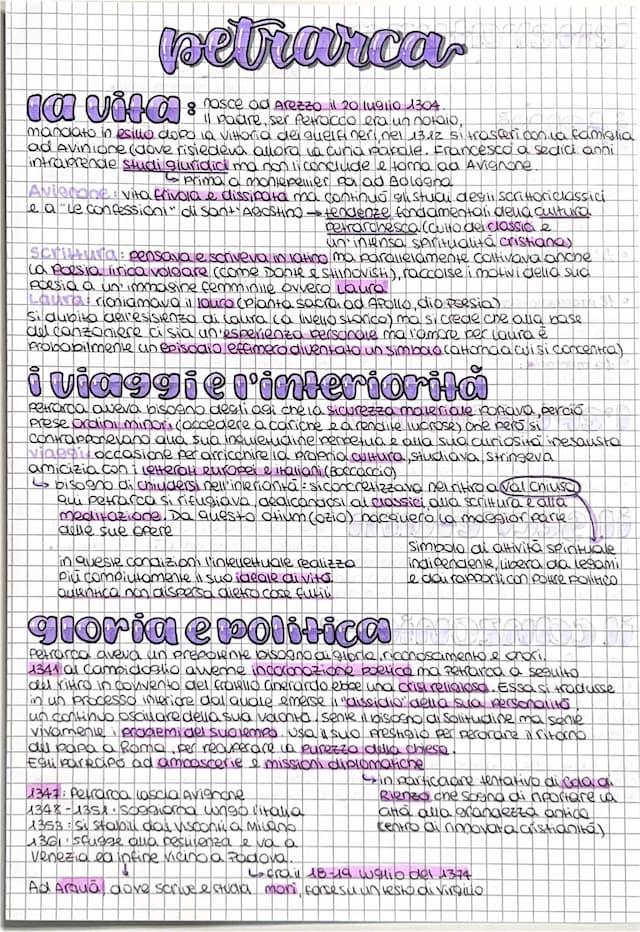 petrarca
la vita: nasce ad Arezzo il 20 luglio 1304.
Il padre, ser Petracco era un notaio,
mandato in esilio dopo la vittoria dei guelfi neri, nel 1312 si trasferì con la famiglia
ad Avinione (dove risiedeva allora la curia papale. Francesco a sedici anni
intraprende studi giuridici ma non li conclude e torna ad Avignone.
↳ prima a montpellier poi ad Bologna
Avignone: vita frivola e dissipata ma continuò gli studi degli scrittori classici
e a "le confessioni" di sant'Agostino → tendenze fondamentali della cultura
petrarchesca (culto dei classici e
un'intensa spiritualità cristiana)
scrittura: pensava e scriveva in latino ma parallelamente coltivava anche
la poesia lirica volgare (come Dante e stilnovisti), raccolse i motivi della sua
poesia a un'immagine femminile ovvero Laura
Laura: richiamava il lauro (pianta sacra ad Apollo, dio poesia)
si dubita dell'esistenza di Laura (a livello storico) ma si crede che alla base
del canzoniere ci sia un'esperienza personale ma l'amore per Laura è
probabilmente un episodio effimero diventato un simbolo (attorno a cui si concentra)
i viaggi e l'interiorità
Petrarca aveva bisogno degli agi che la sicurezza materiale portava, perciò
prese ordini minori (accedere a cariche e a rendite lucrose) che però si
contrapponevano alla sua inquietudine perpetua e alla sua curiosità inesausta
viaggi: occasione per arricchire la propria cultura, studiava, stringeva
amicizia con i letterati europei e italiani (Boccaccio)
↳ bisogno di chiudersi nell'interiorità: si concretizzava nel ritiro a Valchiusa
qui Petrarca si rifugiava, dedicandosi ai classici, alla scrittura e alla
meditazione. Da questo otium (ozio) nacquero la maggior parte
delle sue opere
simbolo di attività spirituale
indipendente, libera da legami
e dai rapporti con potere politico
in queste condizioni l'intellettuale realizza
più compiutamente il suo ideale di vita
autentica non dispersa dietro cose futili
gloria e politica
Petrarca aveva un prepotente bisogno di gloria, riconoscimento e onori.
1341 al Campidoglio avvenne incoronazione poetica ma Petrarca a seguito
del ritiro in convento del fratello Gherardo ebbe una crisi religiosa. Essa si tradusse
in un processo interiore dal quale emerse il "dissidio" della sua personalità,
un continuo oscillare della sua volontà. sente il bisogno di solitudine ma sente
vivamente i problemi del suo tempo. Usa il suo prestigio per perorare il ritorno
del papa a Roma, per recuperare la purezza della chiesa.
Egli partecipò ad ambascerie e missioni diplomatiche
↳ in particolare tentativo di Cola di
Rienzo che sogna di riportare la
città alla grandezza antica
(centro di rinnovata cristianità)
1347: Petrarca lascia Avignone
1348-1351: soggiorna lungo l'Italia
1353: si stabilì dai Visconti a Milano
1361: sfugge alla pestilenza e va a
Venezia ed infine vicino a Padova.
Ad Arquà, dove scrive e studia
↳ tra il 18-19 luglio del 1374
morì, forse su un testo di Virgilio